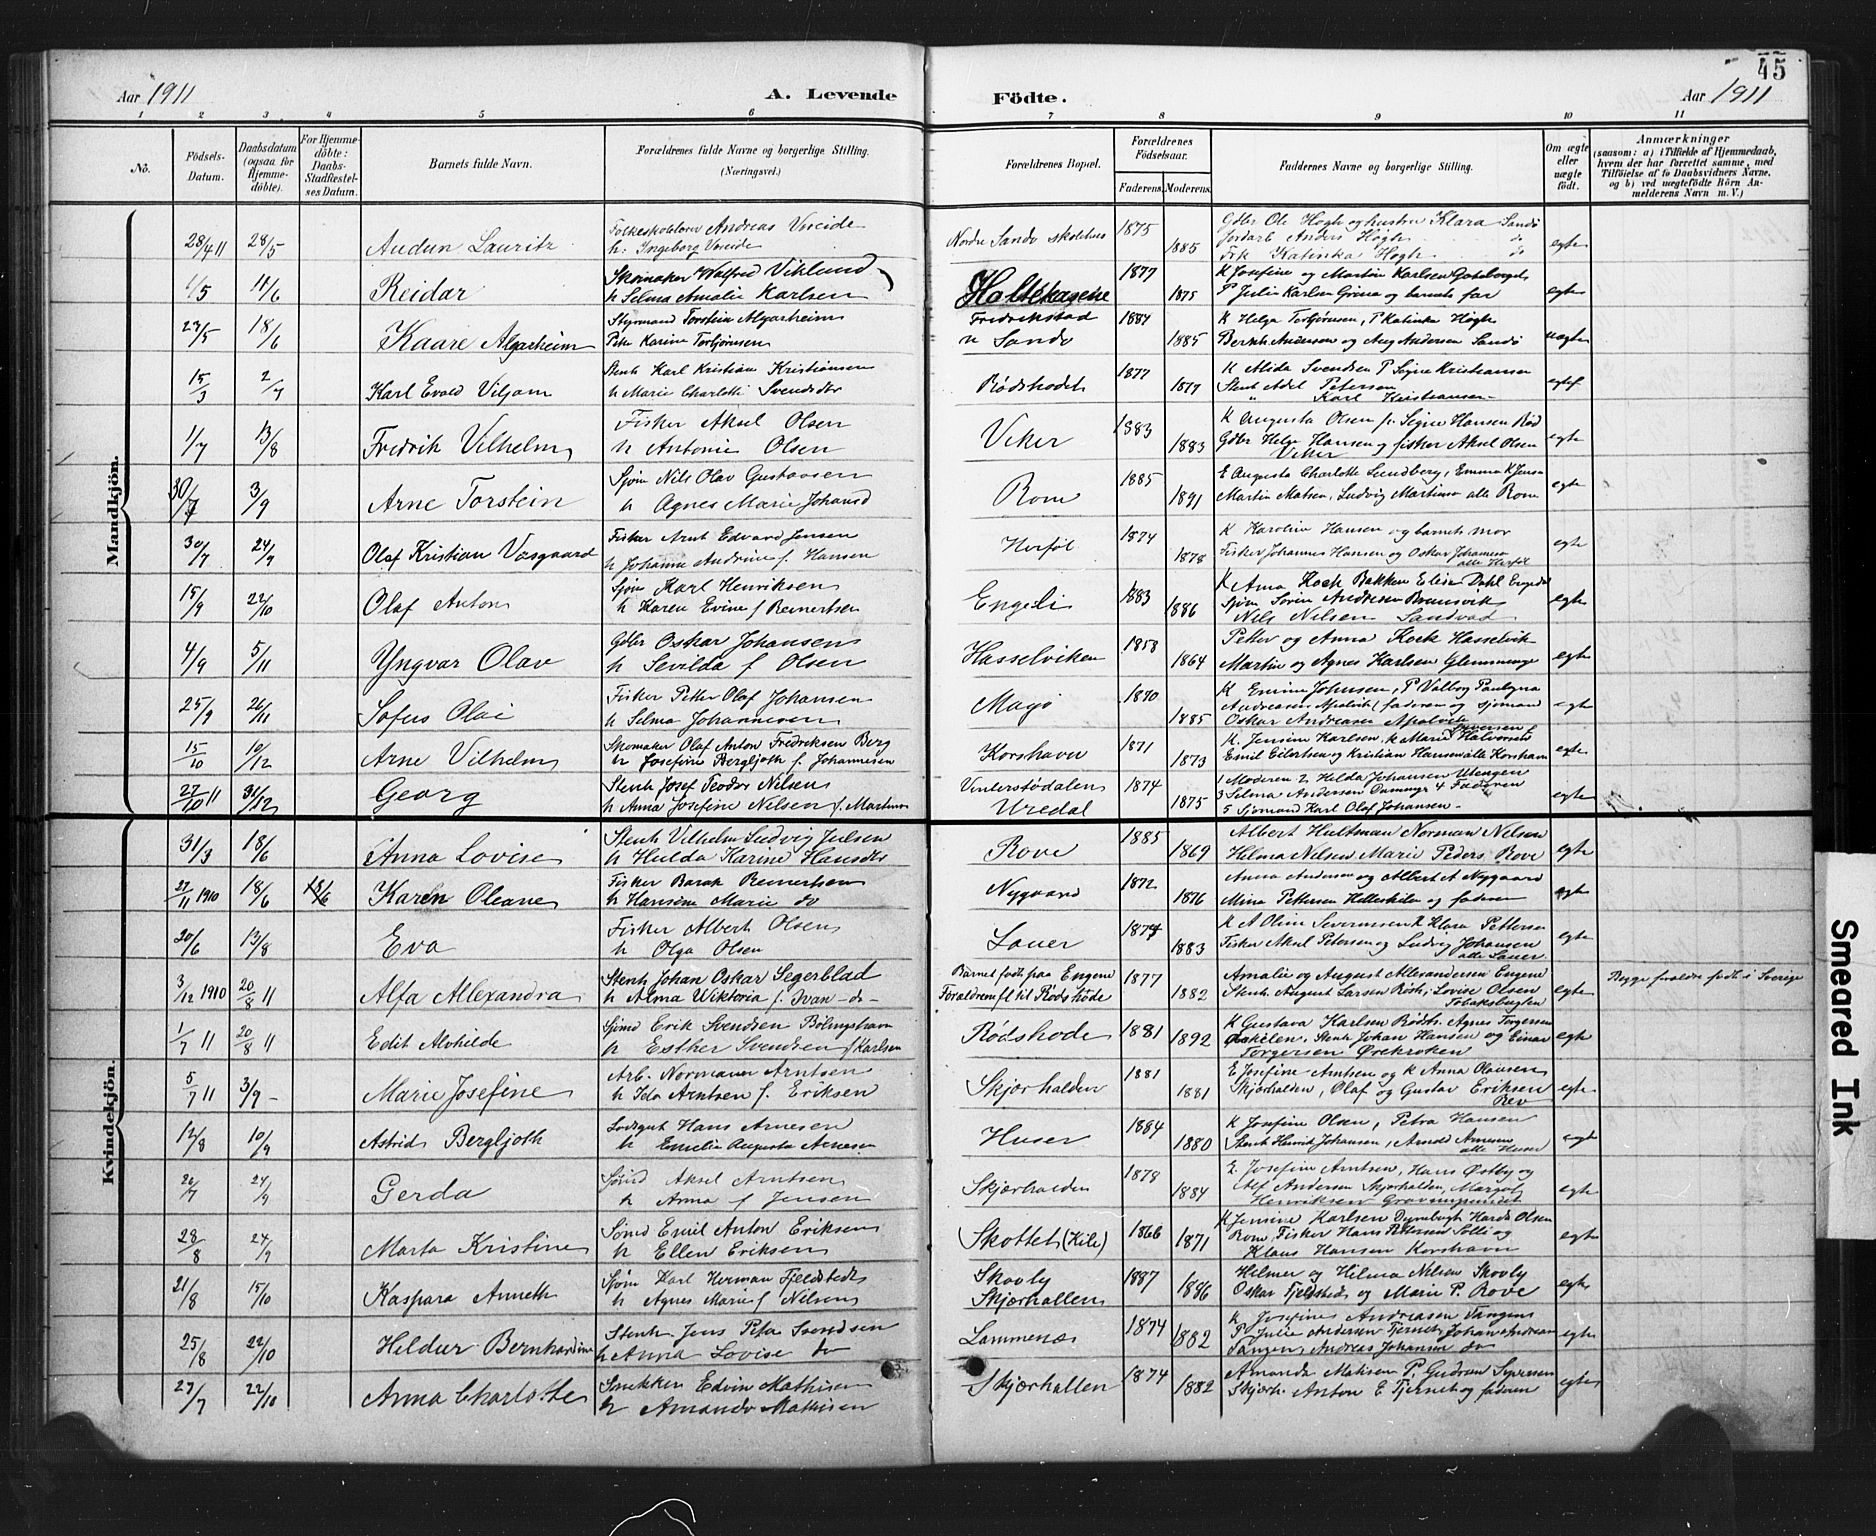 45
Aar 1911
A. Levende
Födte.
Aar 1911
1 2 3 4 5 6 7 8 9 10 11
No.
Födsels-Datum.
Daabsdatum (ogsaa for Hjemmedöbte).
For Hjemmedöbte: Daabs-Stadfæstelses Datum.
Barnets fulde Navn.
Forældrenes fulde Navne og borgerlige Stilling. (Næringsvei.)
Forældrenes Bopæl.
Forældrenes Födselsaar.
Faderens. Moderens.
Faddernes Navne og borgerlige Stilling.
Om ægte eller uægte födt.
Anmærkninger
(saasom: a) i Tilfælde af Hjemmedaab, hvem der har forrettet samme, med Tilföielse af to Daabsvidners Navne, og b) ved uægtefödte Börn Anmelderens Navn m. V.)
Mandkjön.
28/4 11 28/5 Audun Lauritz Andreas Vereide h. Ingeborg Vereide Nordre Sandö skolehus 1875 1885 Gdbr Ole Høgh og hustru Klara Sandö Jordarb Anders Høgh do Frk Katinka Høgh do egte
1/5 11/6 Reidar Skomaker Walfred Viklund h Selma Amalie Karlsen Holtekasene 1877 1875 K Josefine og Martin Karlsen P Julie Karlsen og barnets far egte
18/6 Kaare Algarheim Styrmand Torstein Algarheim Pike Karine Torbjørnsen Fredrikstad Sandö 1884 1885 K Helga Torbjørnsen, P Katinka Høgh Bernh. Andersen og Aug Andersen Sandö uegte
15/3 2/7 Karl Evald Viljam Stenh Karl Kristian Kristiansen h Marie Charlotte Svendsdtr Rødshodet 1877 1877 K Alida Svendsen P Signe Kristiansen Stenh Adel Petersen " Karl Kristiansen egte
1/7 13/8 Fredrik Vilhelm Fisker Aksel Olsen h Antonie Olsen Viker 1883 1883 K Augusta Olsen fr. Signe Hansen Rød Gdbr Helge Hansen og fisker Aksel Olsen Viker egte
30/7 3/9 Arne Torstein Sjøm Nils Olav Gustavsen h Agnes Marie Johansd Rom 1885 1891 E Augusta Charlotte Lundberg, Emma K Jensen Martin Matsen, Ludvig Martinsen alle Rom egte
30/7 24/9 Olaf Kristian Vasgaard Fisker Arnt Edvard Jensen h Johanne Andrine f. Hansen Herføl 1874 1878 K Karoline Hansen og barnets mor Fisker Johannes Hansen og Oskar Johannesen alle Herføl egte
15/9 22/10 Olaf Anton Sjøm Karl Henriksen h Karen Evine f Reinertsen Engeli 1883 1886 K Anna Hoch Bakken Elise Dahl Engedal Sjøm Søren Andresen Brunsvik Nils Nilsen Sandvad egte
4/9 5/11 Yngvar Olav Gdbr Oskar Johansen h Sevilda f Olsen Hasselviken 1858 1864 Petter og Anna Kock Hasselvik Martin og Agnes Karlsen Glemminge egte
25/9 26/11 Sofus Olai Fisker Petter Olaf Johansen h Selma Johannesen Magø 1870 1885 K Emine Johnsen, P Valborg Andreasen Apalvik faderen og sjømand Oskar Andreasen Apalvik egte
15/10 10/12 Arne Vilhelm Skomaker Olaf Anton Fredriksen Berg h Josefine Bergljoth f. Johannesen Korshavn 1871 1873 K. Jensine Karlsen, K Marie Halvorsen Emil Eilertsen og Kristian Hansen alle Korshavn egte
27/10 11 31/12 Georg Stenh Josef Teodor Nilsen h Anna Josefine Nilsen f. Martinsen Vinterstødalen Uredal 1874 1875 1 Moderen 2 Helda Johansen Utengen 3 Selma Andersen 4 Faderen 5 Sjømand Karl Olaf Johansen - egte
Kvindekjön.
31/3 18/6 Anna Lovise Stenh Vilhelm Ludvig Juelsen h Hulda Karine Hansdtr Rove 1885 1869 Albert Hultman Norman Nelsen Helma Nelsen Marie Peders Rove egte
27/11 1910 18/6 18/6 Karen Oleane Fisker Barak Reinertsen h Hansine Marie do Nygaard 1872 1876 Anna Andersen og Albert A Nygaard Mina Pettersen Hellekilen og faderen egte
20/6 13/8 Eva Fisker Albert Olsen h Olga Olsen Lauer 1874 1883 K A Oline Severinsen K Klara Pettersen Fisker Aksel Petersen og Ludvig Johansen alle Lauer egte
3/12 1910 20/8 11 Alfa Allexandra Stenh Johan Oskar Segerblad h Alma Wiktoria f. Ivan -do- Barnet født paa Engene Forældrene fl til Rødshode 1877 1882 Amalie og August Allexandersen Engene Stenh. August Larsen Rødh, Lovise Olsen Tobaksbugten egte Begge foreldre født i Sverige
1/7 11 20/8 11 Edit Alvhilde Sjömd Erik Svendsen Bölingshavn h Esther Svendsen f Karlsen Rødshode 1881 1892 K Gustava Karlsen Rødsh. Agnes Torgersen Stenh Johan Hansen og Einar Torgersen Ørekroken egte
5/7 11 3/9 - Marie Josefine Arb. Normann Arntsen h Ida Arntsen f. Eriksen Skjærhalden 1881 1881 E Josefine Arntsen og K Anna Olausen Skjærhalden, Olaf og Gustav Eriksen Rev egte
12/8 10/9 Astrid Bergljoth Lodsgut Hans Arnesen h Emelie Augusta Arnesen Huser 1884 1880 K Josefine Olsen, Petra Hansen Stenh Henrik Johansen, Arnold Arnesen alle Huser egte
26/7 24/9 Gerda Sømd Aksel Arntsen h Anna f Jensen Skjærhalden 1878 1884 E. Josefine Arntsen, Hans Østby og Alf Andersen Skjærhalden, Margot Henriksen egte
28/8 24/9 Marta Kristine Sømd Emil Anton Eriksen h Ellen Eriksen Skottet (Kile) 1866 1871 K Jensine Karlsen Harda Olsen Rom, Fisker Hans Pettersen Sollie og Klaus Hansen Korshavn egte
21/8 15/10 Kaspara Anneth Sjøm Karl Herman Fjeldstedt h Agnes Marie f Nilsen Skovly Skjærhallen 1887 1886 Hilmer og Hilma Nelsen Skovly Oskar Fjeldsted og Marie P. Rove egte
25/8 22/10 Heldur Bernhardine Stenh Jens Peter Svendsen h Anna Lovise do Lammenæs 1874 1882 K Josefine Andreasen Tangen P Julie Andersen Tjernet, Johan Andreasen Tangen, Andreas Johansen do egte
27/7 22/10 Anna Charlotte Snekker Edvin Mathisen h Amanda Mathisen Skjærhallen 1874 1882 Amanda Matisen P. Gudrun Syversen Skjærh. Anton E Tjernet og faderen egte
Smeared Ink